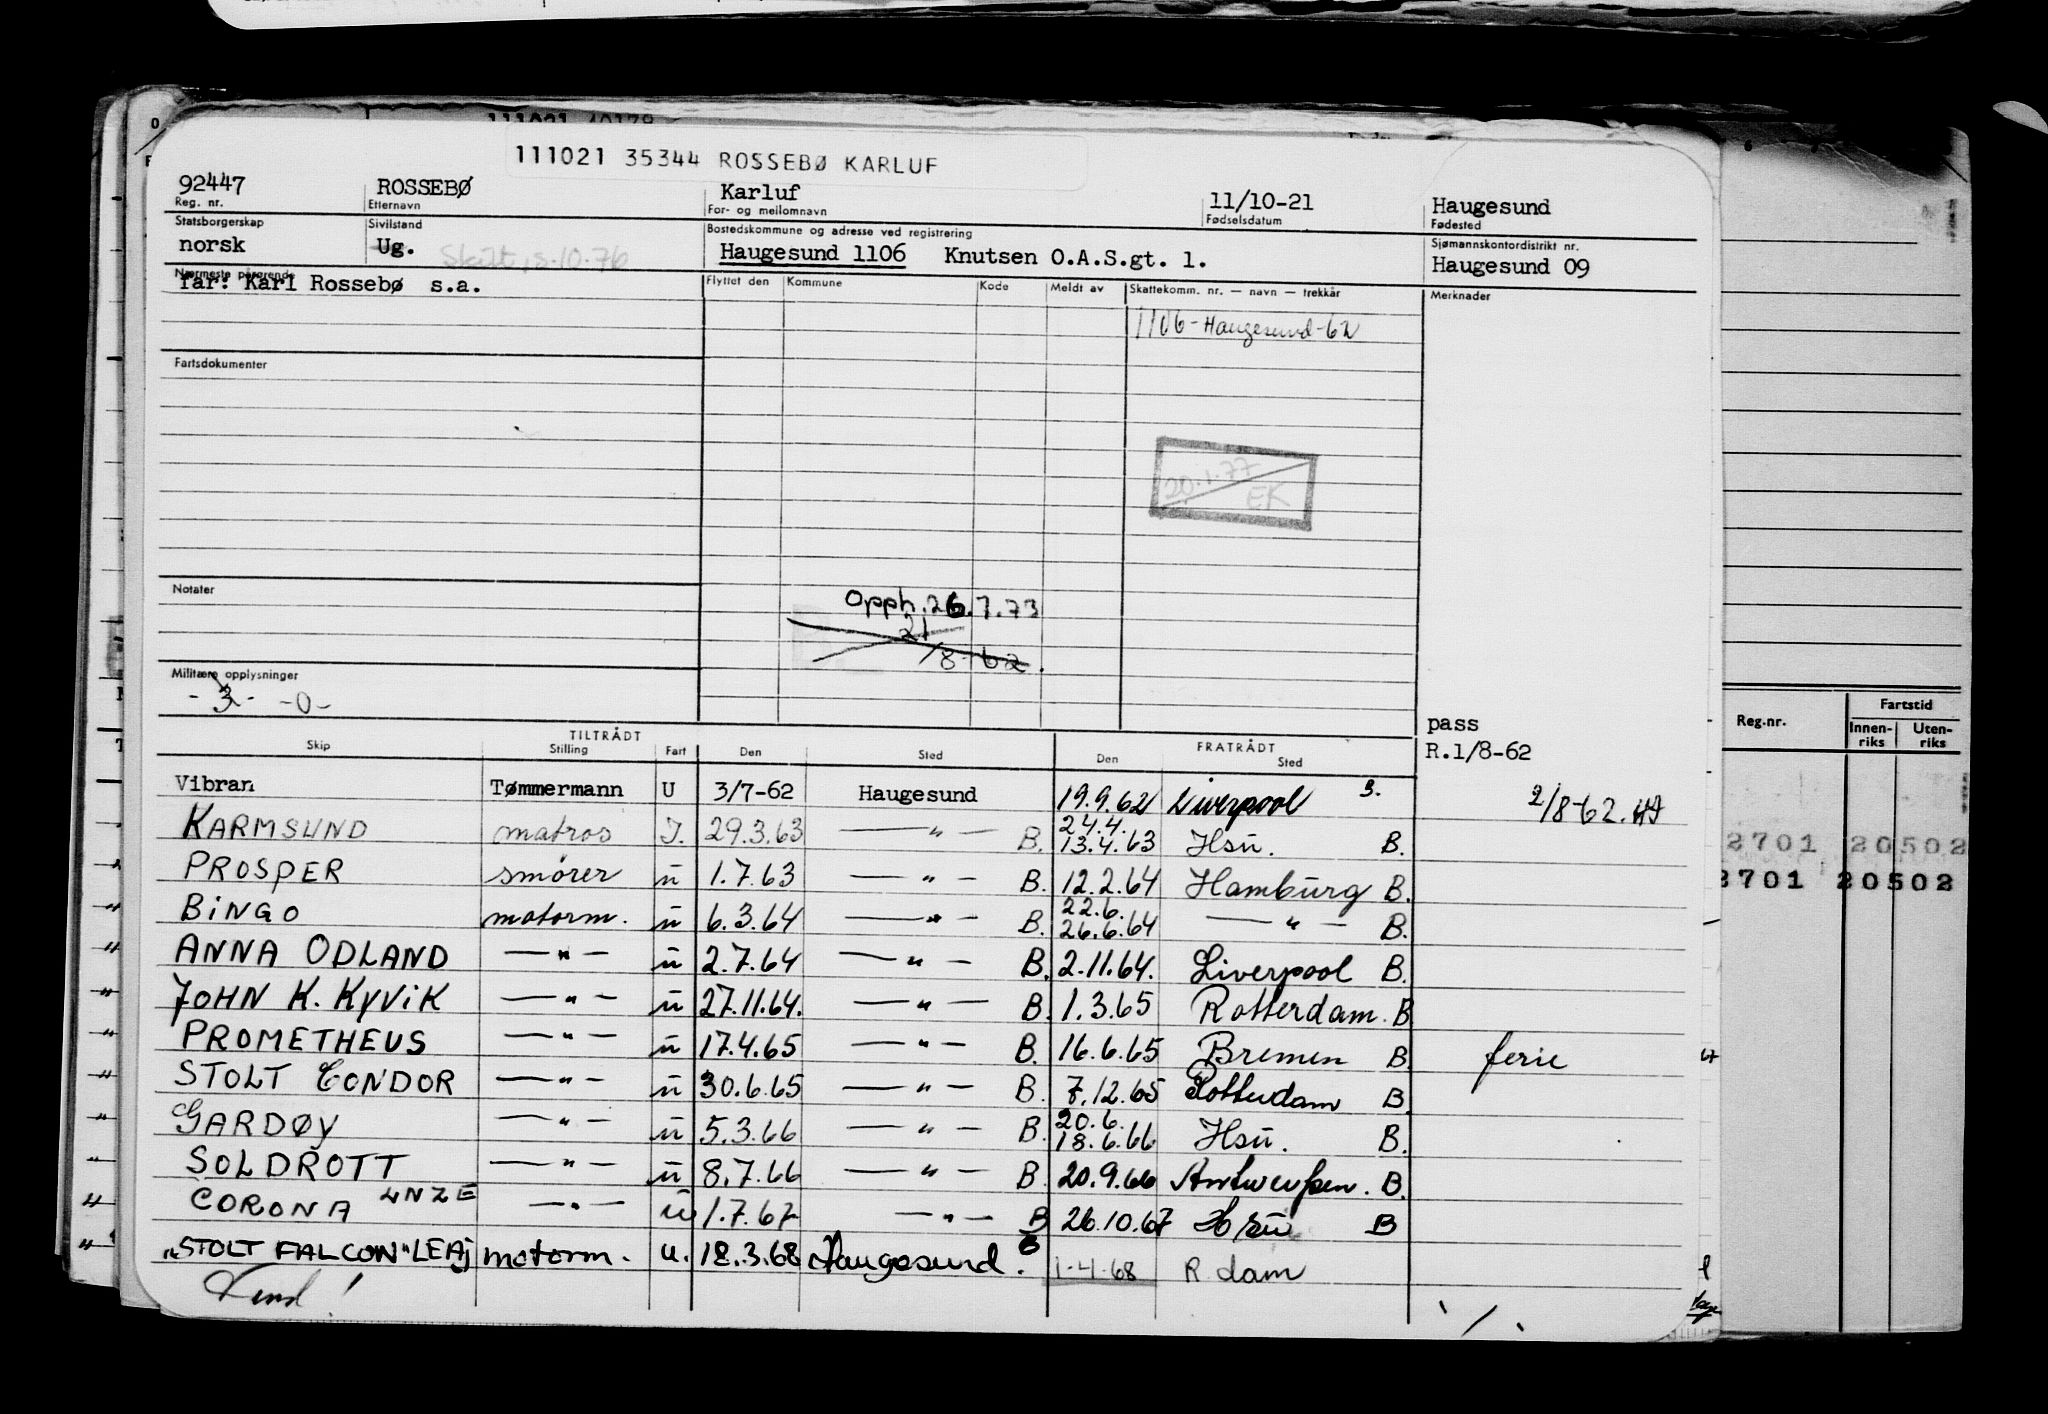 111021 35344 ROSSEBØ KARLUF
92447 ROSSEBØ Karluf 11/10-21 Haugesund
Reg. nr. Etternavn For- og mellomnavn Fødselsdatum Fødested
Statsborgerskap Sivilstand Bostedskommune og adresse ved registrering Sjømannskontordistrikt nr.
norsk Ug. Skilt, s.10.76 Haugesund 1106 Knutsen O.A.S.gt. 1. Haugesund 09
Nærmeste pårørende Flyttet den Kommune Kode Meldt av Skattekomm. nr. — navn — trekkår Merknader
far: Karl Rossebø s.a.
1106-Haugesund-62
Fartsdokumenter
20.1.77
EK
Notater
Opph. 26.7.73
21
/8-62.
Militære opplysninger
- 3 - -0-
pass
R.1/8-62
TILTRÅDT FRATRÅDT
Skip Stilling Fart Den Sted Den Sted
Reg.nr. Fartstid
Innen-riks Uten-riks
Vibran Tømmermann U 3/7-62 Haugesund 19.9.62 Liverpool B. 2/8-62.
KARMSUND matros I. 29.3.63 —"— B. 24.4. 13.4.63 Hsu. B.
2701 20502
PROSPER smører u 1.7.63 —"— B. 12.2.64 Hamburg B.
3701 20502
BINGO motorm. u 6.3.64 —"— B. 22.6. 26.6.64 —"— B.
ANNA ODLAND —"— u 2.7.64 —"— B. 2.11.64. Liverpool B.
JOHN K. KYVIK —"— u 27.11.64. —"— B. 1.3.65 Rotterdam. B
PROMETHEUS —"— u 17.4.65 —"— B. 16.6.65 Bremen B. ferie
STOLT CONDOR —"— u 30.6.65 —"— B. 7.12.65 Rotterdam B.
GARDØY —"— u 5.3.66 —"— B. 20.6. 18.6.66 Hsu. B.
SOLDROTT —"— u 8.7.66 —"— B. 20.9.66 Antwerpen. B.
CORONA LNZE —"— u 1.7.67 —"— B 26.10.67 Hsu B
"STOLT FALCON" LEAJ motorm. u. 18.3.68 Haugesund. B 1-4-68 R.dam
Vend!